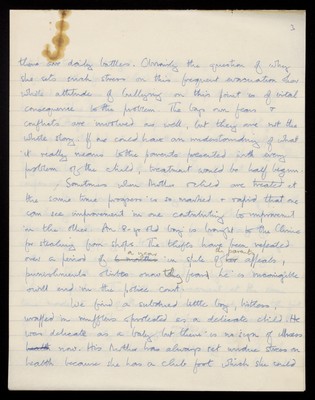 3
their daily battles. Obviously the question of why
she sets such stress on this frequent evacuation her
whole attitude of bullying on this point is of vital
consequence to the problem. The boys own fears &
conflicts are involved as well, but they are not the
whole story. If we could have an understanding of what
it really means to the parents presented with every
problem of the child, treatment would be half begun.
Sometimes when Mother & child are treated at
the same time progress is so marked & rapid that one
can see improvement in one contributing to improvement
in the other. An 8 yr old boy is brought to the Clinic
for stealing from shops. The thefts have been repeated
over a period of in spite of the parents appeals,
punishments & threats they found he is incorrigible
& will end in the police court.
We find a subdued little boy, William,
wrapped in mufflers & protected as a delicate child. He
was delicate as a baby but there is no sign of illness
now. His Mother has always set undue stress on
health because she has a club foot which she could